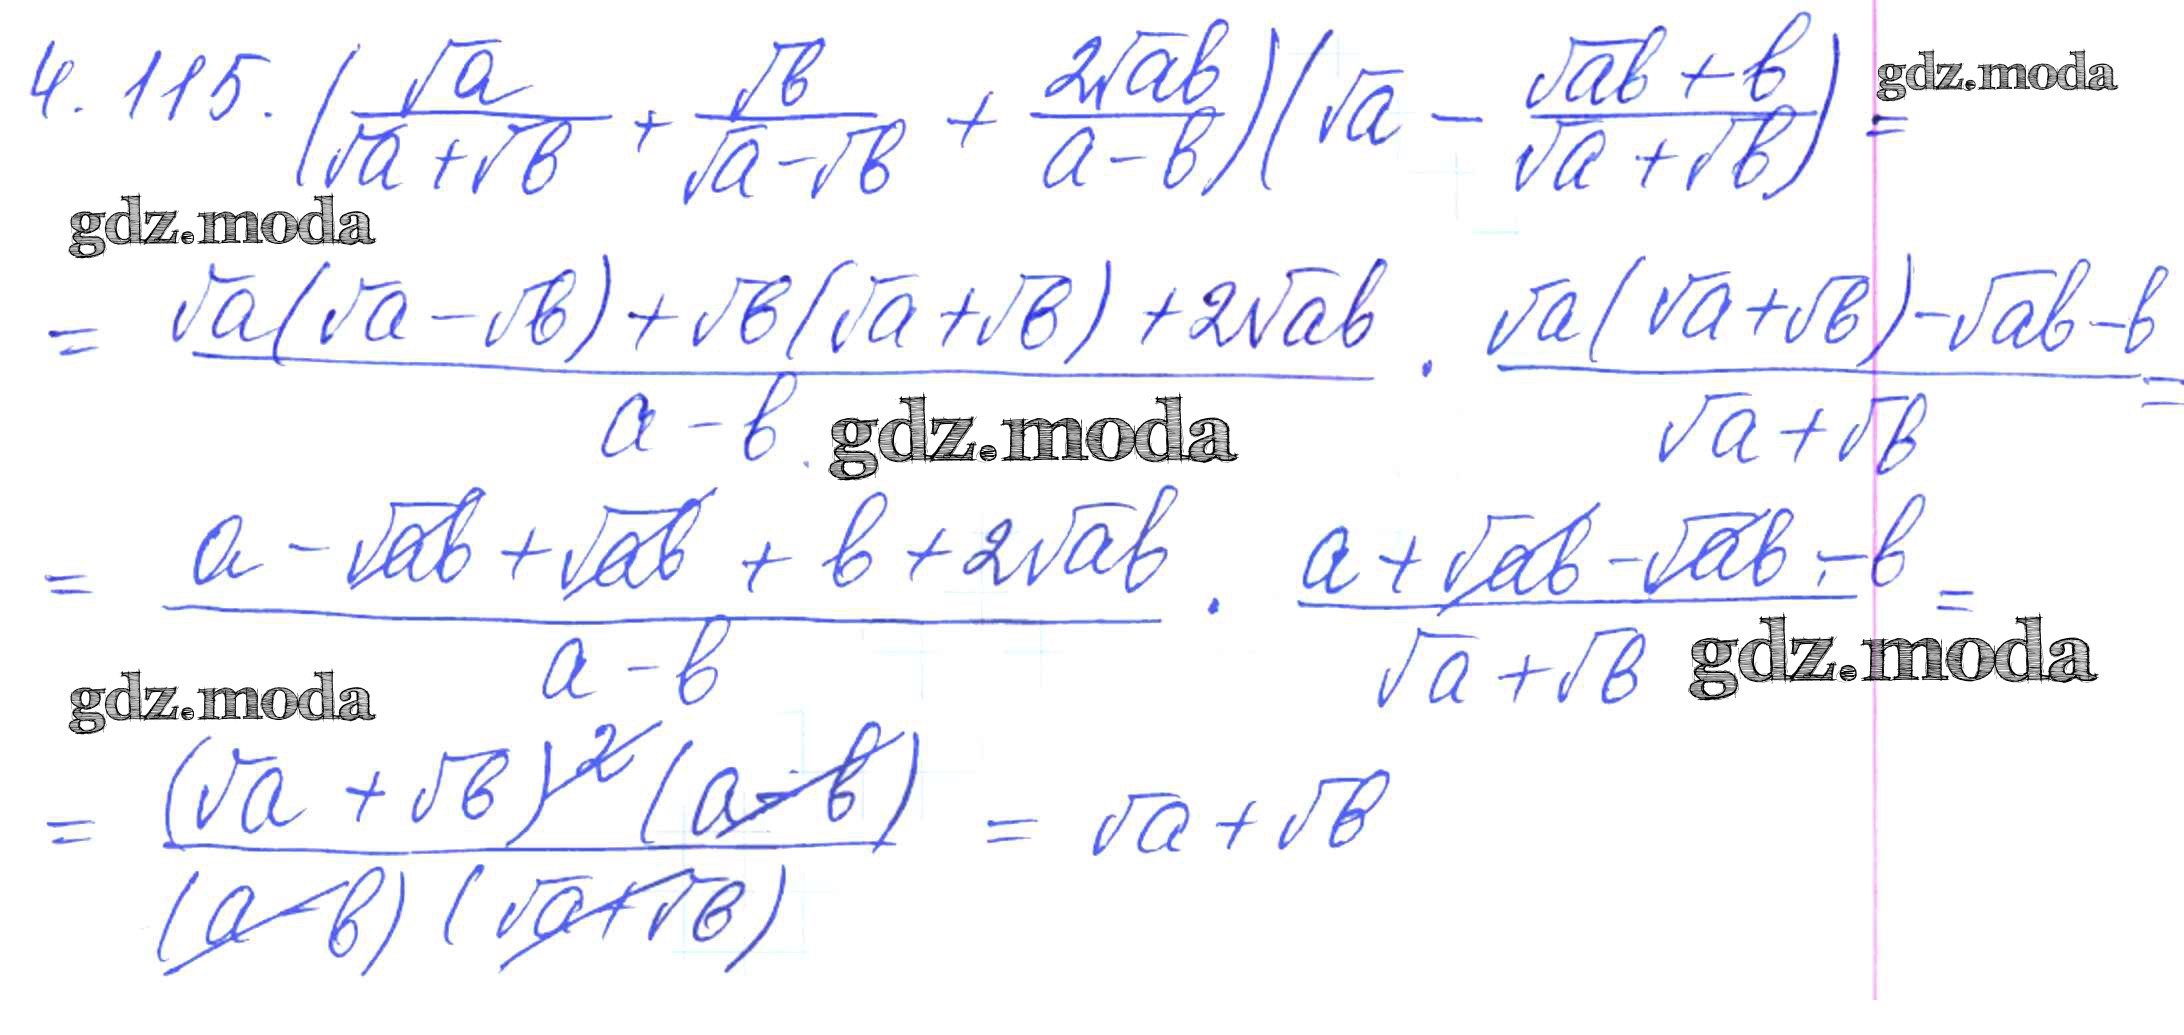 4.115. (√a/(√a+√b) + √b/(√a-√b) + 2√ab/(a-b))(√a - (√ab+b)/(√a+√b)) =
gdz.moda
gdz.moda
= (√a(√a-√b)+√b(√a+√b)+2√ab)/(a-b) · (√a(√a+√b)-√ab-b)/(√a+√b) =
gdz.moda
= (a-√ab+√ab+b+2√ab)/(a-b) · (a+√ab-√ab-b)/(√a+√b) =
gdz.moda
gdz.moda
= ((√a+√b)²(a-b))/((a-b)(√a+√b)) = √a+√b